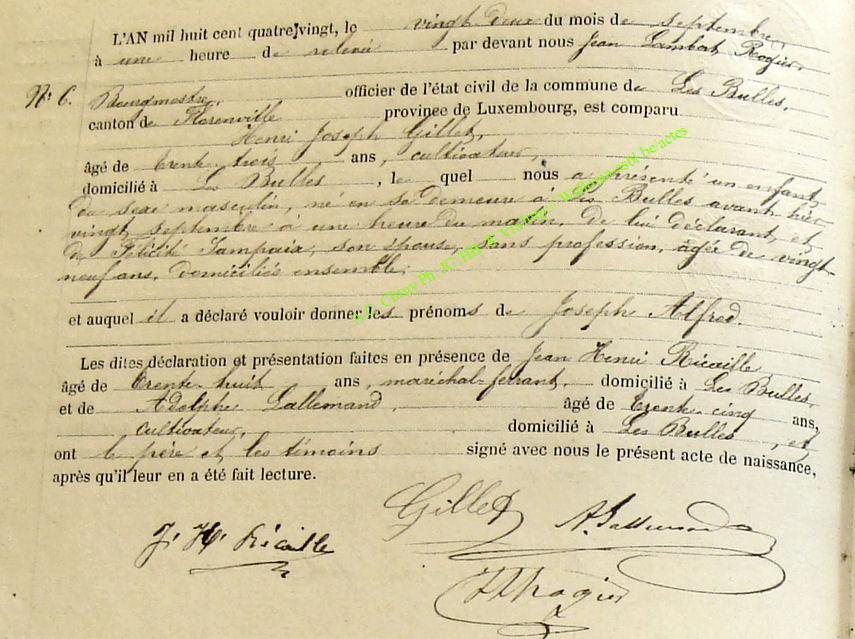 L'AN mil huit cent quatre vingt, le vingt deux du mois de septembre,
à une heure de relevée par devant nous Jean Lambert Rogier,
N° 6. Bourgmestre, officier de l'état civil de la commune de Les Bulles,
canton de Florenville province de Luxembourg, est comparu
Henri Joseph Gillet,
âgé de trente-trois ans, cultivateur,
domicilié à Les Bulles, le quel nous a présenté un enfant
du sexe masculin, né en sa demeure à Les Bulles avant hier
vingt septembre à une heure du matin, de lui déclarant et
de Félicité Jampaix, son épouse, sans profession, âgée de vingt
neuf ans, domiciliés ensemble,
et auquel il a déclaré vouloir donner les prénoms de Joseph Alfred.
Les dites déclaration et présentation faites en présence de Jean Henri Ricaille,
âgé de trente-huit ans, maréchal-ferrant, domicilié à Les Bulles,
et de Adolphe Lallemand, âgé de trente cinq ans,
cultivateur, domicilié à Les Bulles, et
ont le père et les témoins signé avec nous le présent acte de naissance,
après qu'il leur en a été fait lecture.
Gillet A. Lallemand
J. H. Ricaille
Rogier